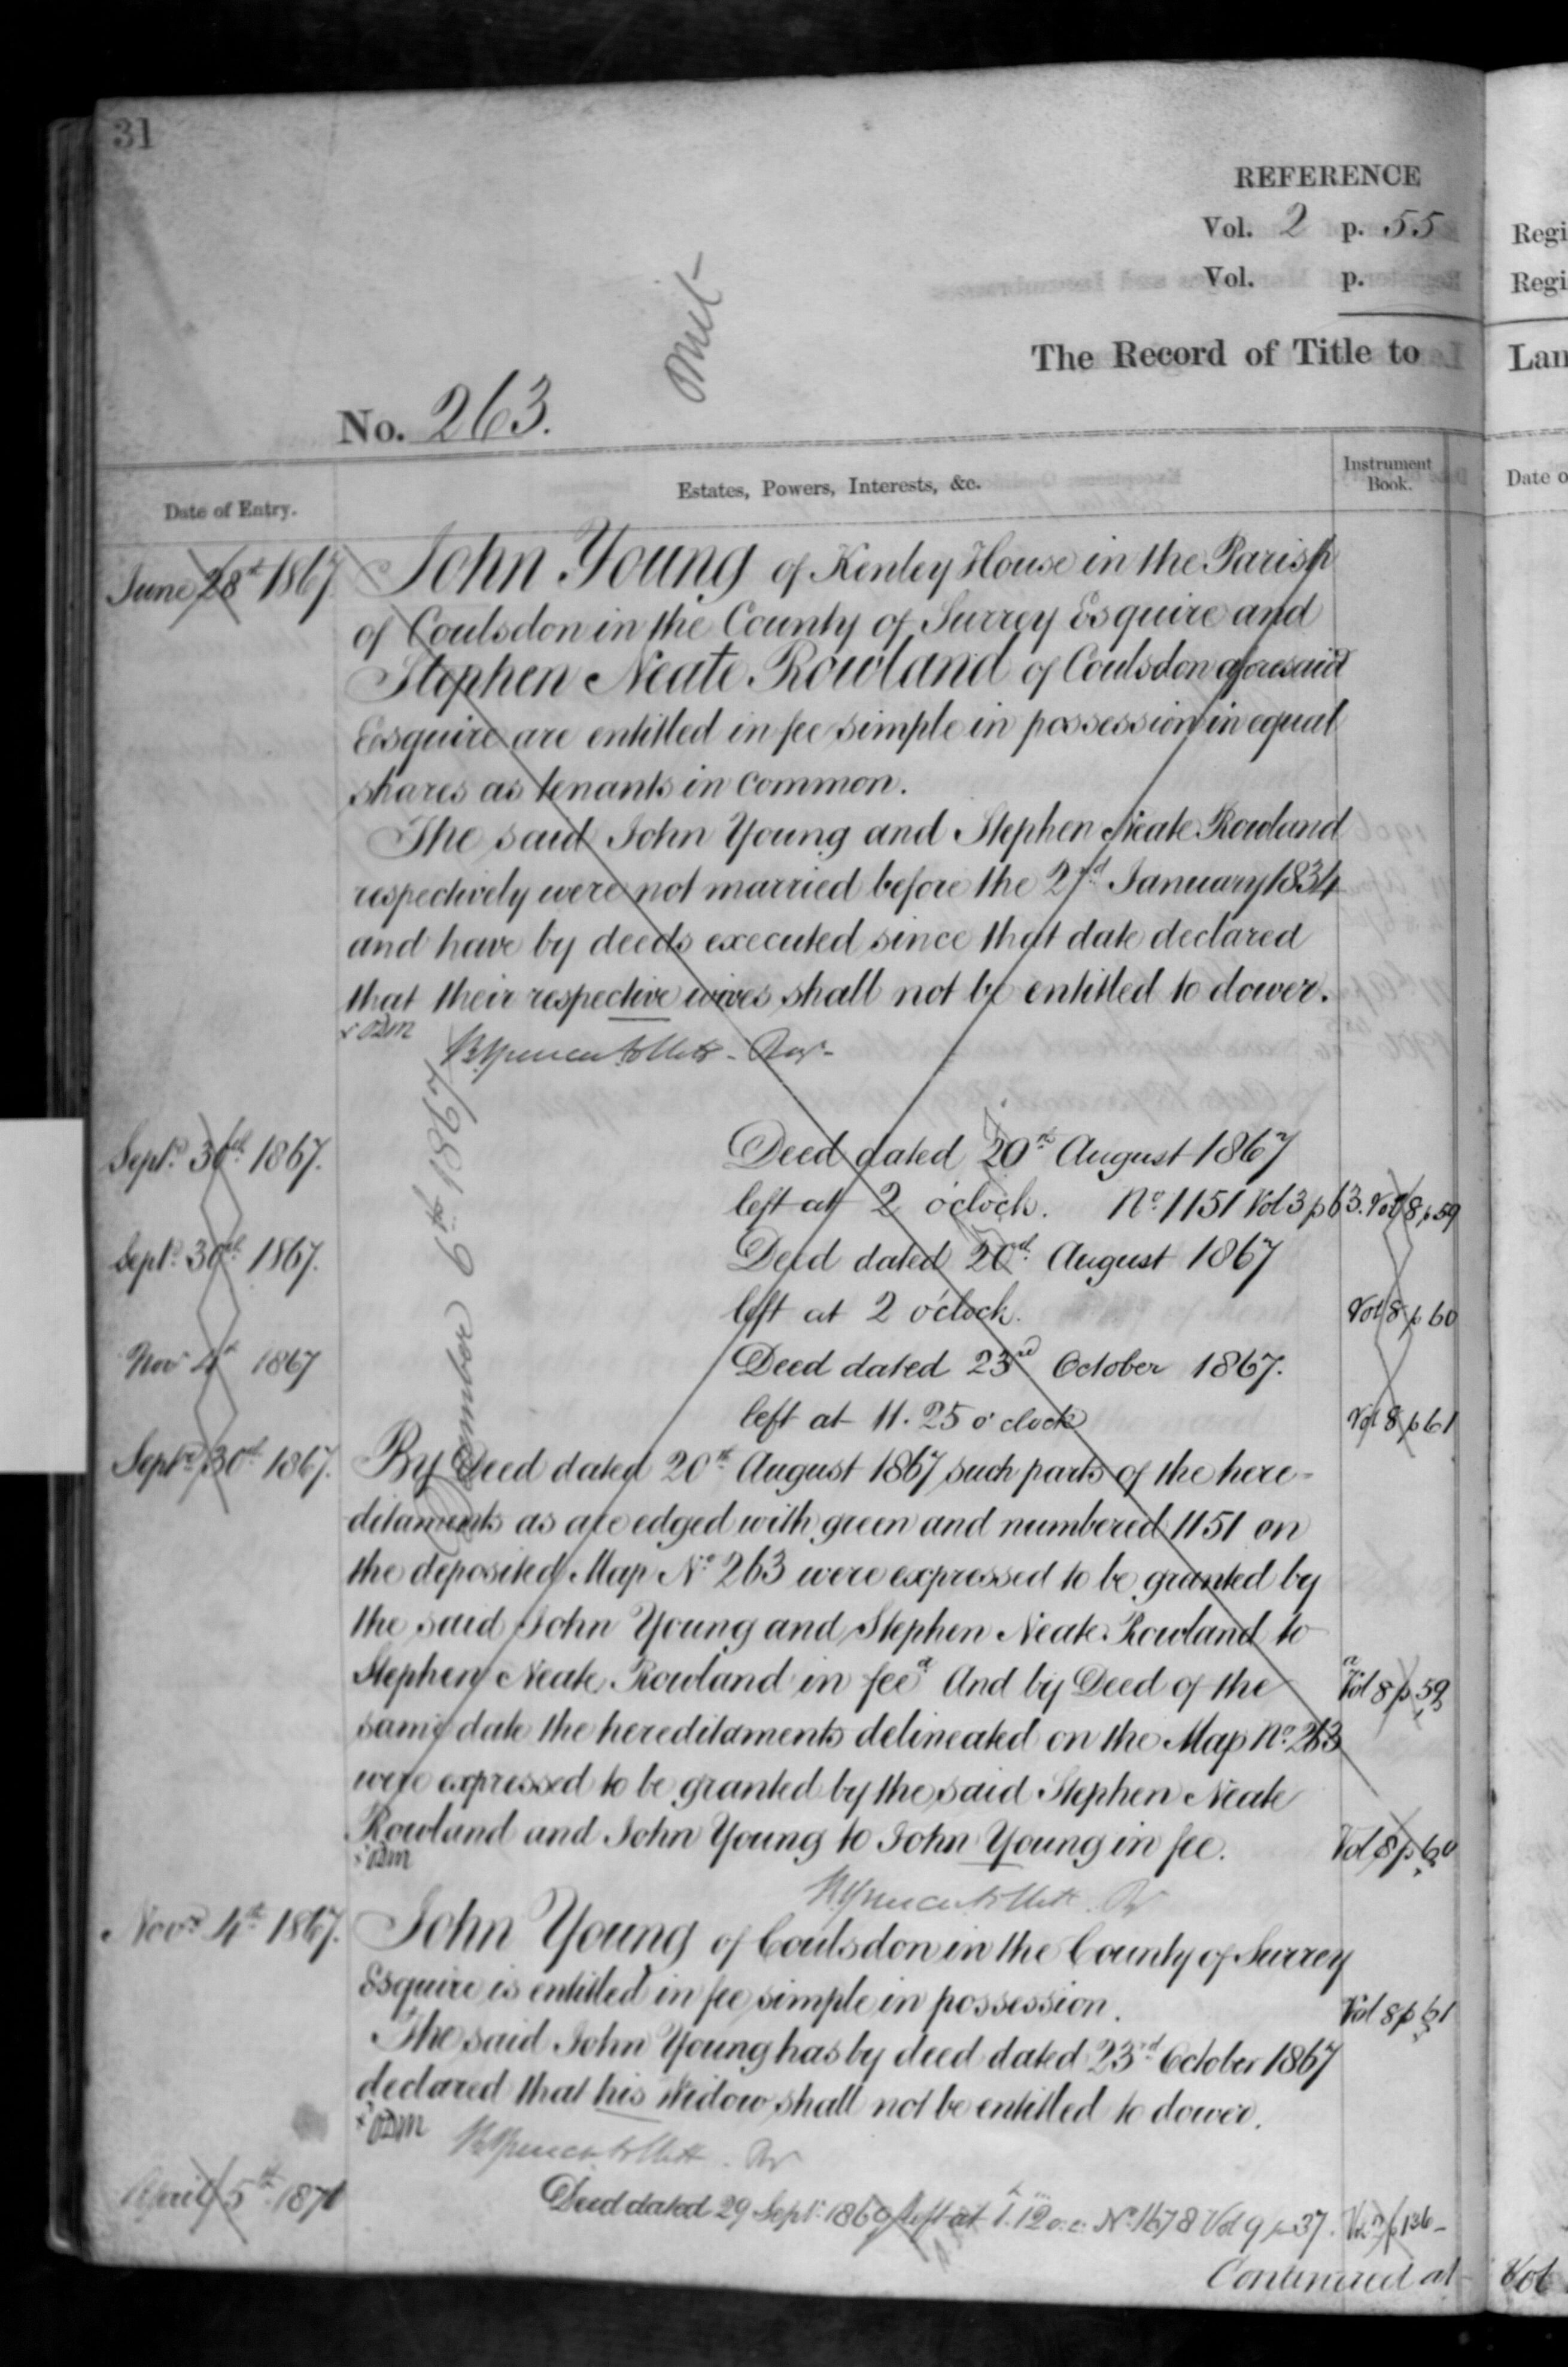 31
REFERENCE
Vol. 2 p. 55
Vol. p.
omit
The Record of Title to
No. 263.
Date of Entry.
Estates, Powers, Interests, &c.
Instrument Book.
June 28th 1867 John Young of Kenley House in the Parish
of Coulsdon in the County of Surrey Esquire and
Stephen Neate Rowland of Coulsdon aforesaid
Esquire are entitled in fee simple in possession in equal
shares as tenants in common.
The said John Young and Stephen Neate Rowland
respectively were not married before the 2nd January 1834
and have by deeds executed since that date declared
that their respective wives shall not be entitled to dower.
December 6th 1867
Septr. 30th 1867. Deed dated 20th August 1867
left at 2 o'clock. No. 1151 Vol 3 p 63. Vol 8 p 59
Septr. 30th 1867. Deed dated 20th August 1867
left at 2 o'clock. Vol 8 p 60
Novr 4th 1867 Deed dated 23rd October 1867.
left at 11.25 o'clock Vol 8 p 61
Septr 30th 1867. By Deed dated 20th August 1867 such parts of the here-
ditaments as are edged with green and numbered 1151 on
the deposited Map No. 263 were expressed to be granted by
the said John Young and Stephen Neate Rowland to
Stephen Neate Rowland in fee a And by Deed of the a Vol 8 p 59
same date the hereditaments delineated on the Map No. 263
were expressed to be granted by the said Stephen Neate
Rowland and John Young to John Young in fee. Vol 8 p 60
Novr 4th 1867. John Young of Coulsdon in the County of Surrey
Esquire is entitled in fee simple in possession. Vol 8 p 61
The said John Young has by deed dated 23rd October 1867
declared that his Widow shall not be entitled to dower.
April 5th 1871 Deed dated 29 Septr. 1869 left at 1.12 o.c. No. 1678 Vol 9 p 37.
Continued at Vol
Regi
Regi
Lan
Date o